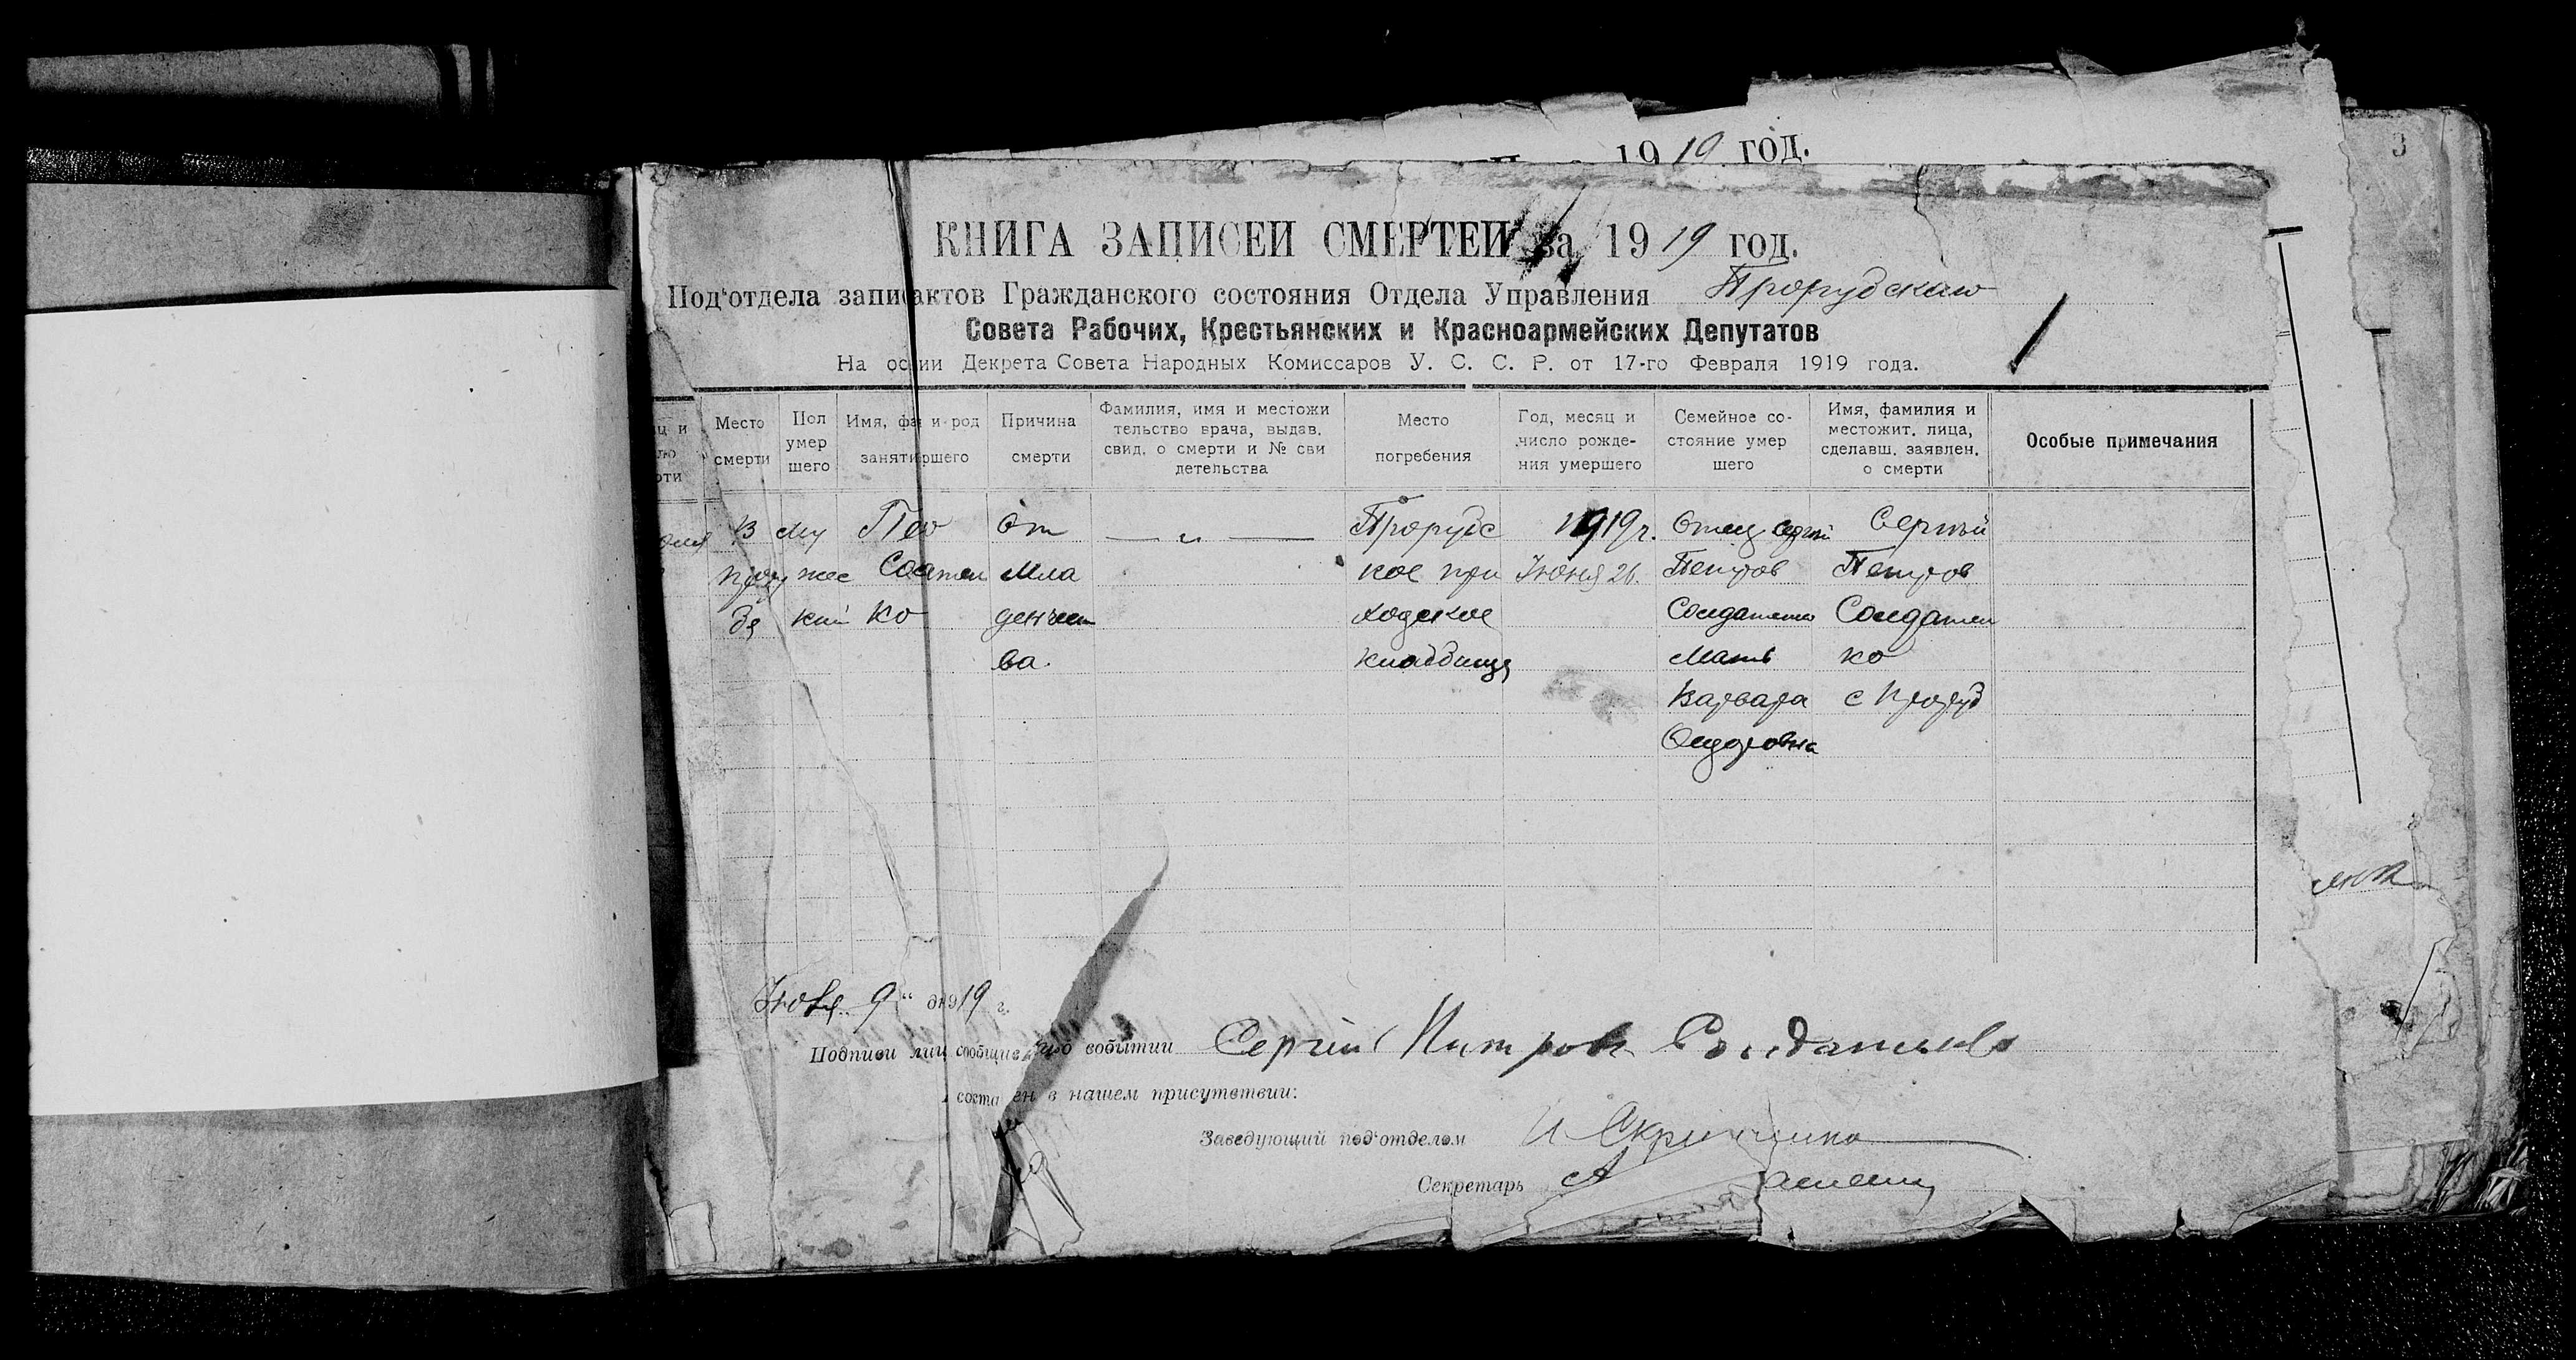 19 19 год.
3
КНИГА ЗАПИСЕЙ СМЕРТЕЙ за 19 19 год.
Под'отдела запи актов Гражданского состояния Отдела Управления Прорубскаго
Совета Рабочих, Крестьянских и Красноармейских Депутатов
На ос ии Декрета Совета Народных Комиссаров У. С. С. Р. от 17-го Февраля 1919 года.
Место смерти
Пол умер шего
Имя, фа и род занят ршего
Причина смерти
Фамилия, имя и местожи тельство врача, выдав. свид. о смерти и № сви детельства
Место погребения
Год, месяц и число рожде- ния умершего
Семейное со- стояние умер шего
Имя, фамилия и местожит. лица, сделавш. заявлен. о смерти
Особые примечания
В Му от — „ — Прорубс 1919 г. Отец Сергій Сергѣй
жес Мла кое при Июня 26. Петров Петров
кий ко денчест ходское Солдатенко Солдатен
ва. кладбище Мать ко
Варвара с Проруб
9 " дн 919 г.
Подписи лиц сообщив о событии Сергій Питров Солдатенко
соста ен в нашем присутствии:
Заведующий под'отделом И
Секретарь А